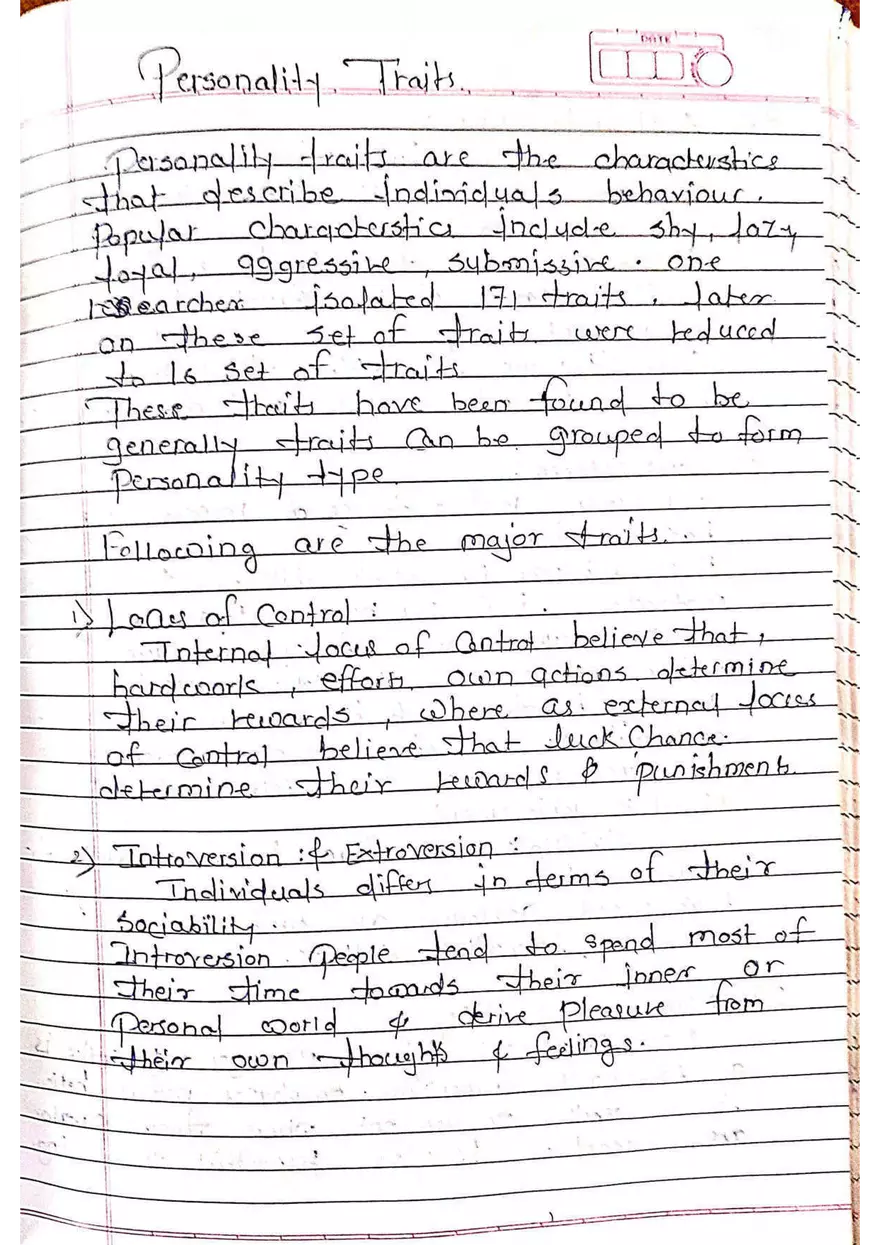 DATE
Personality Traits.
Personality traits are the characteristics
that describe individuals behaviour.
Popular characterstics include shy, lazy
loyal, aggressive, submissive. one
researcher isolated 171 traits, later
on these set of traits were reduced
to 16 set of traits
These traits have been found to be
generally traits can be grouped to form
personality type
Following are the major traits.
1) Locus of Control :
Internal locus of Control believe that,
hardwork, efforts, own actions determine
their rewards, where as external locus
of Control believe that luck Chance
determine their rewards & punishments.
2) Introversion : & Extroversion :
Individuals differs in terms of their
sociability.
Introversion People tend to spend most of
their time towards their inner or
Personal world & derive pleasure from
their own thoughts & feelings.